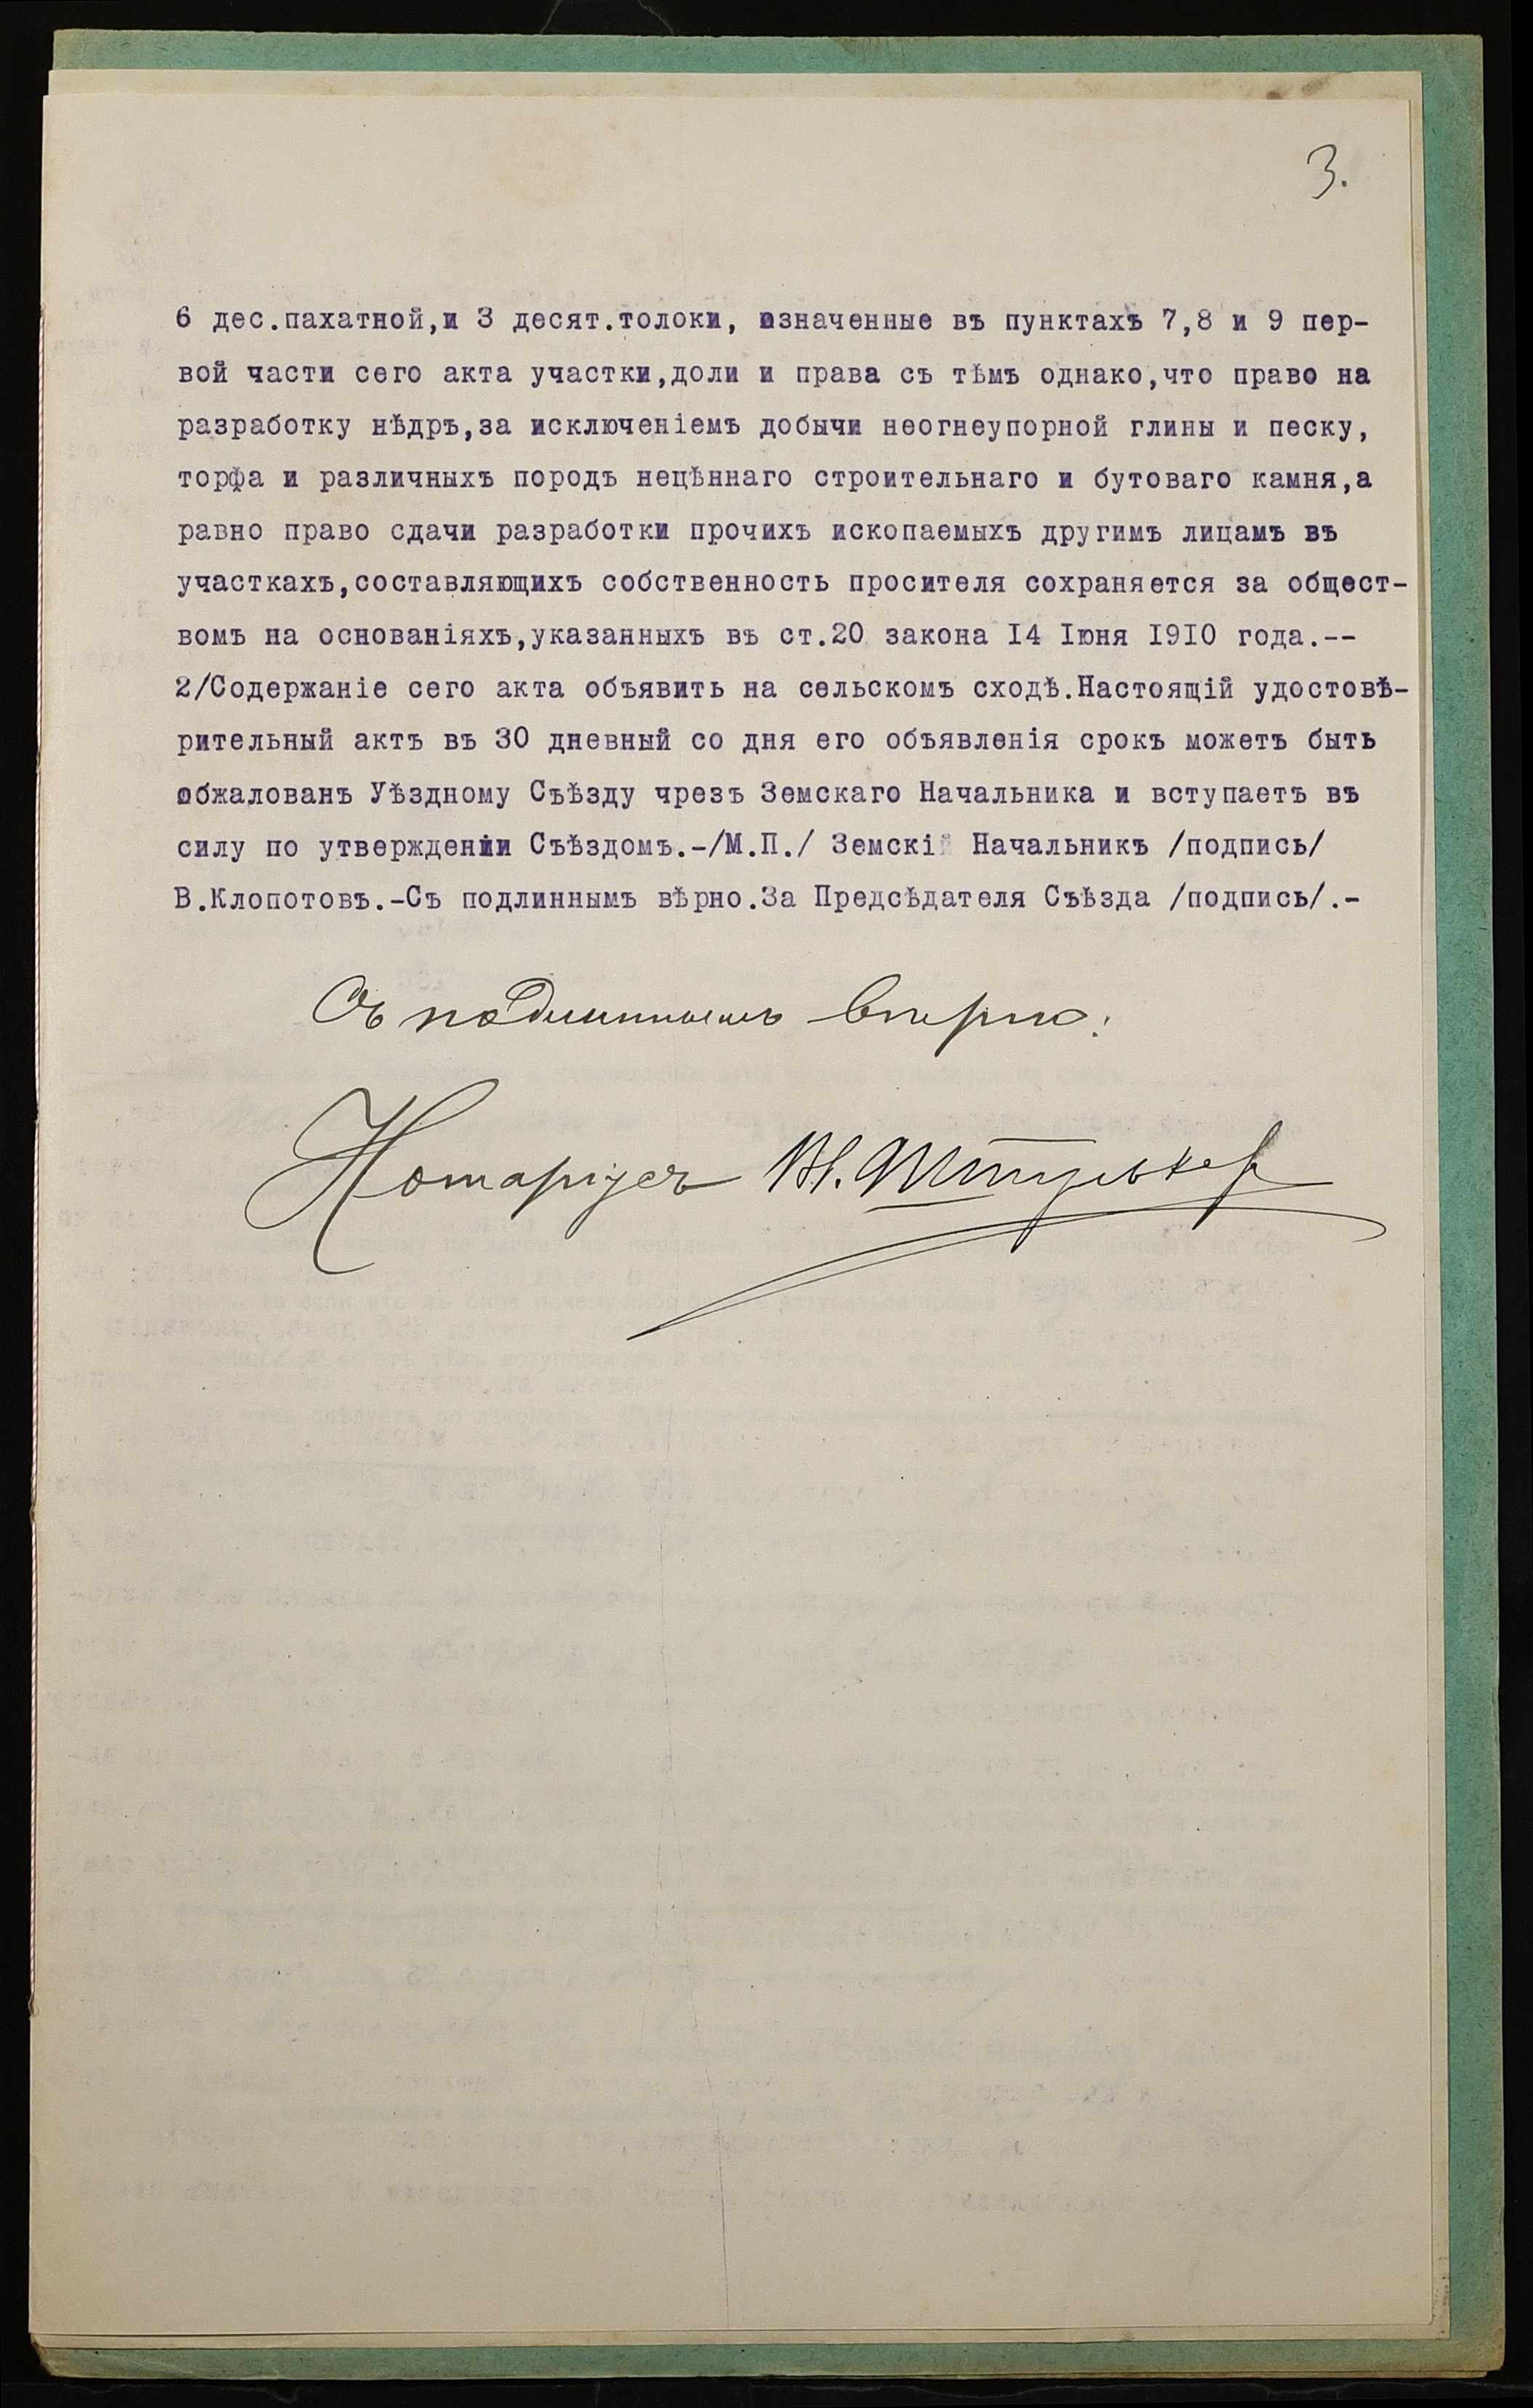 3.
6 дес.пахатной,и 3 десят.толоки, означенные въ пунктахъ 7,8 и 9 пер-
вой части сего акта участки,доли и права съ тѣмъ однако,что право на
разработку нѣдръ,за исключеніемъ добычи неогнеупорной глины и песку,
торфа и различныхъ породъ нецѣннаго строительнаго и бутоваго камня,а
равно право сдачи разработки прочихъ ископаемыхъ другимъ лицамъ въ
участкахъ,составляющихъ собственность просителя сохраняется за общест-
вомъ на основаніяхъ,указанныхъ въ ст.20 закона I4 Iюня I9I0 года.--
2/Содержаніе сего акта объявить на сельскомъ сходѣ.Настоящій удостовѣ-
рительный актъ въ 30 дневный со дня его объявленія срокъ можетъ быть
обжалованъ Уѣздному Съѣзду чрезъ Земскаго Начальника и вступаетъ въ
силу по утвержденіи Съѣздомъ.-/М.П./ Земскій Начальникъ /подпись/
В.Клопотовъ.-Съ подлиннымъ вѣрно.За Предсѣдателя Съѣзда /подпись/.-
Съ подлиннымъ вѣрно:
Нотаріусъ